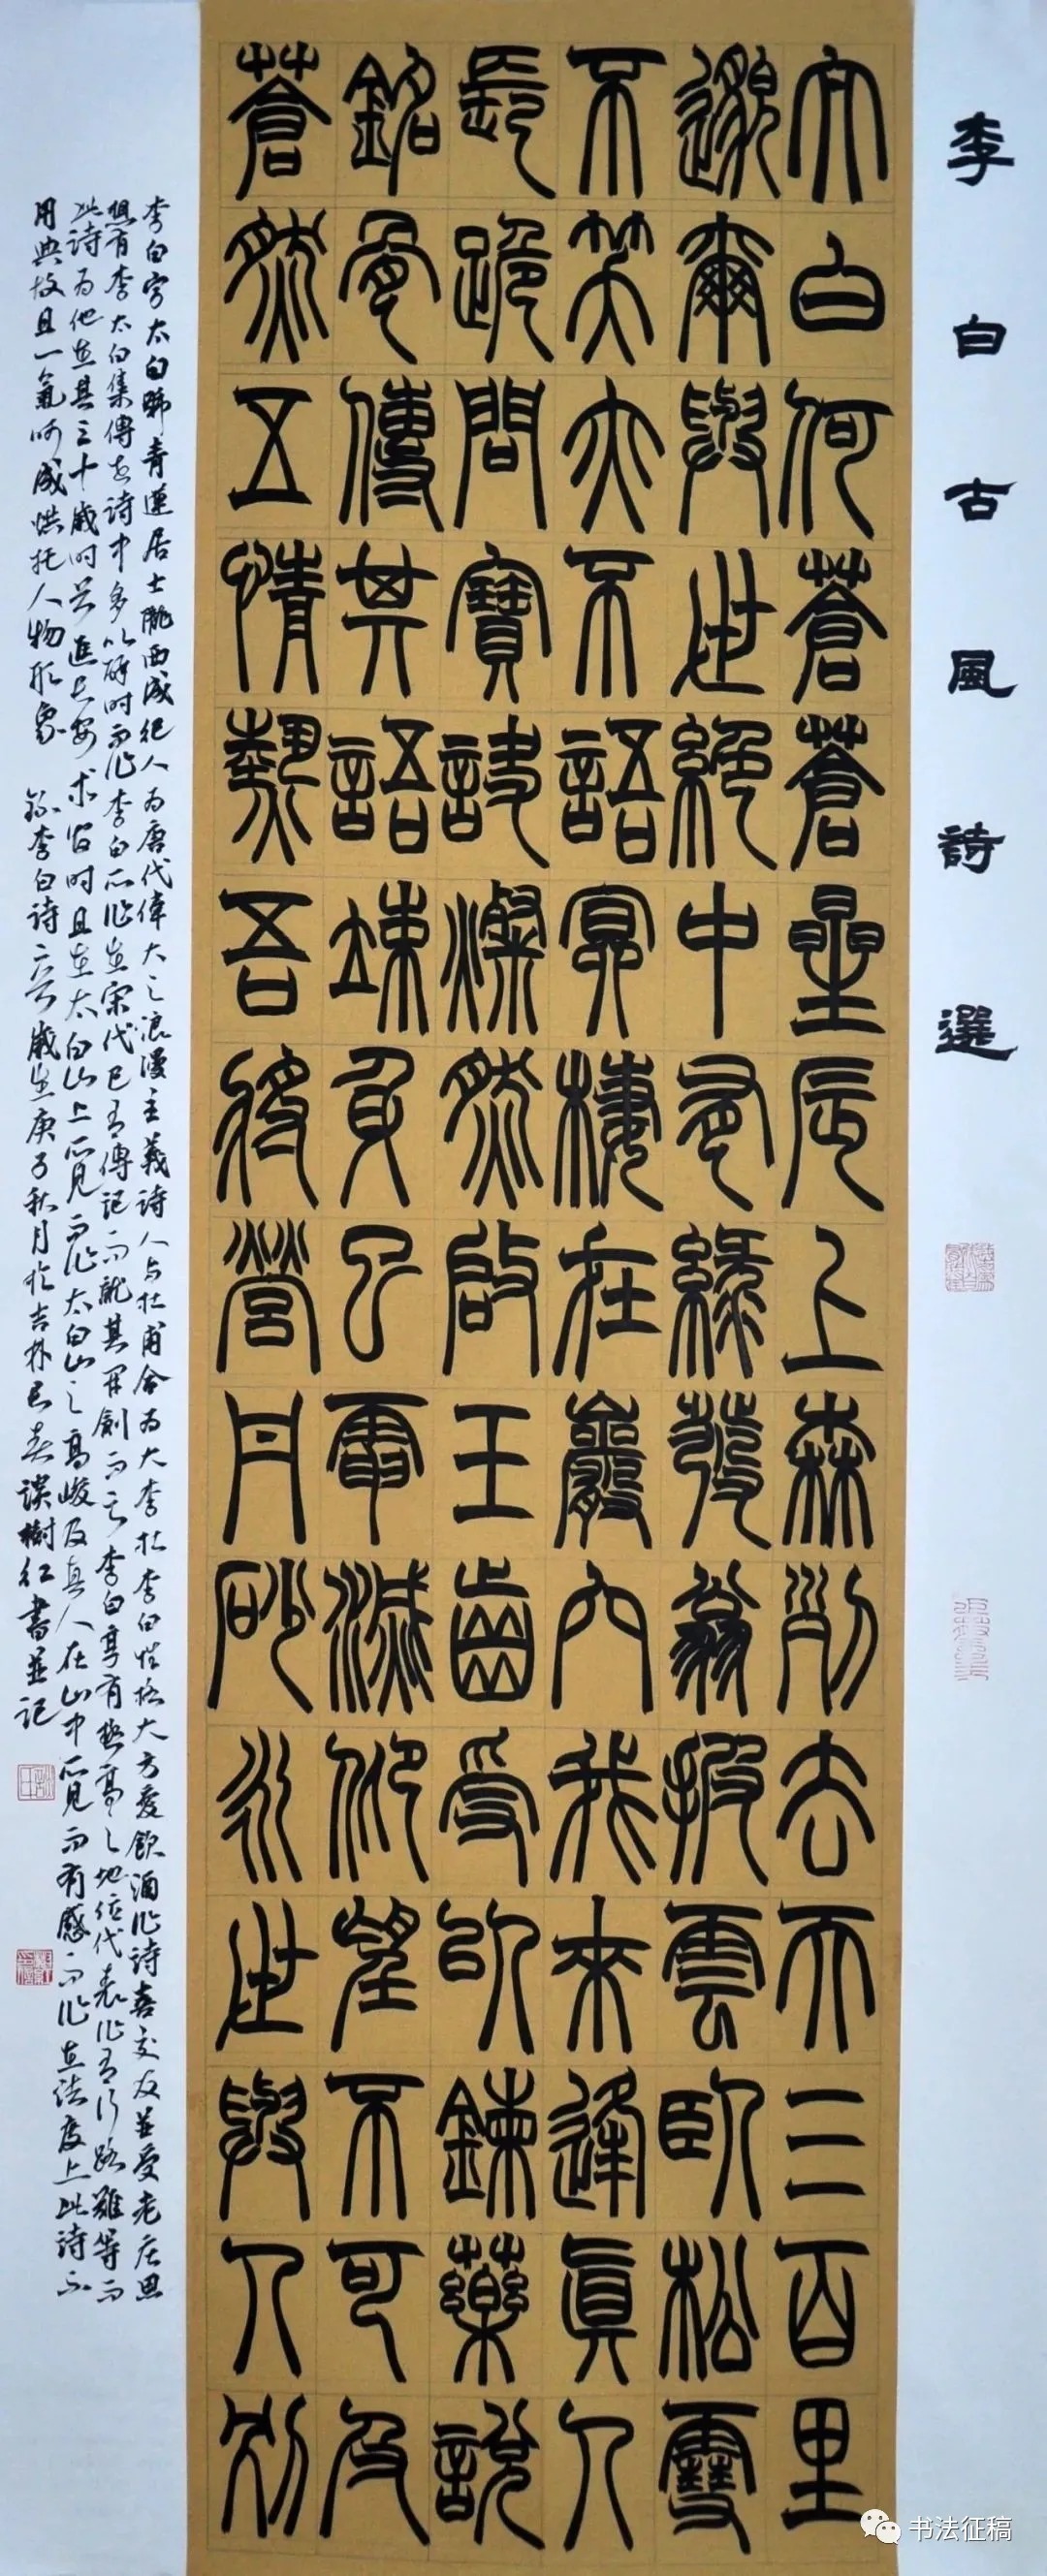 李白古風詩選
太白何蒼蒼星辰上森列去天三百里
邈爾與世絕中有綠髮翁披雲臥松雪
不笑亦不語冥棲在巖穴我來逢真人
長跪問寶訣粲然啟玉齒受以鍊藥說
銘骨傳其語竦身已電滅仰望不可及
蒼然五情熱吾將營丹砂永世與人別
李白字太白號青蓮居士隴西成紀人为唐代偉大之浪漫主義詩人与杜甫合为大李杜李白性格大方爱飲酒作詩喜交友並受老庄思
想有李太白集傳世詩中多以醉时而作李白所作在宋代已有傳记而就其開創而言李白享有極高之地位代表作有行路難等而
此詩为他在其三十歲时為進长安求官时且在太白山上所见而作太白山之高峻及真人在山中所见而有感而作在法度上此詩不
用典故且一氣呵成烘托人物形象 錄李白詩一首歲在庚子秋月於吉林长春譚樹红書並记
书法征稿